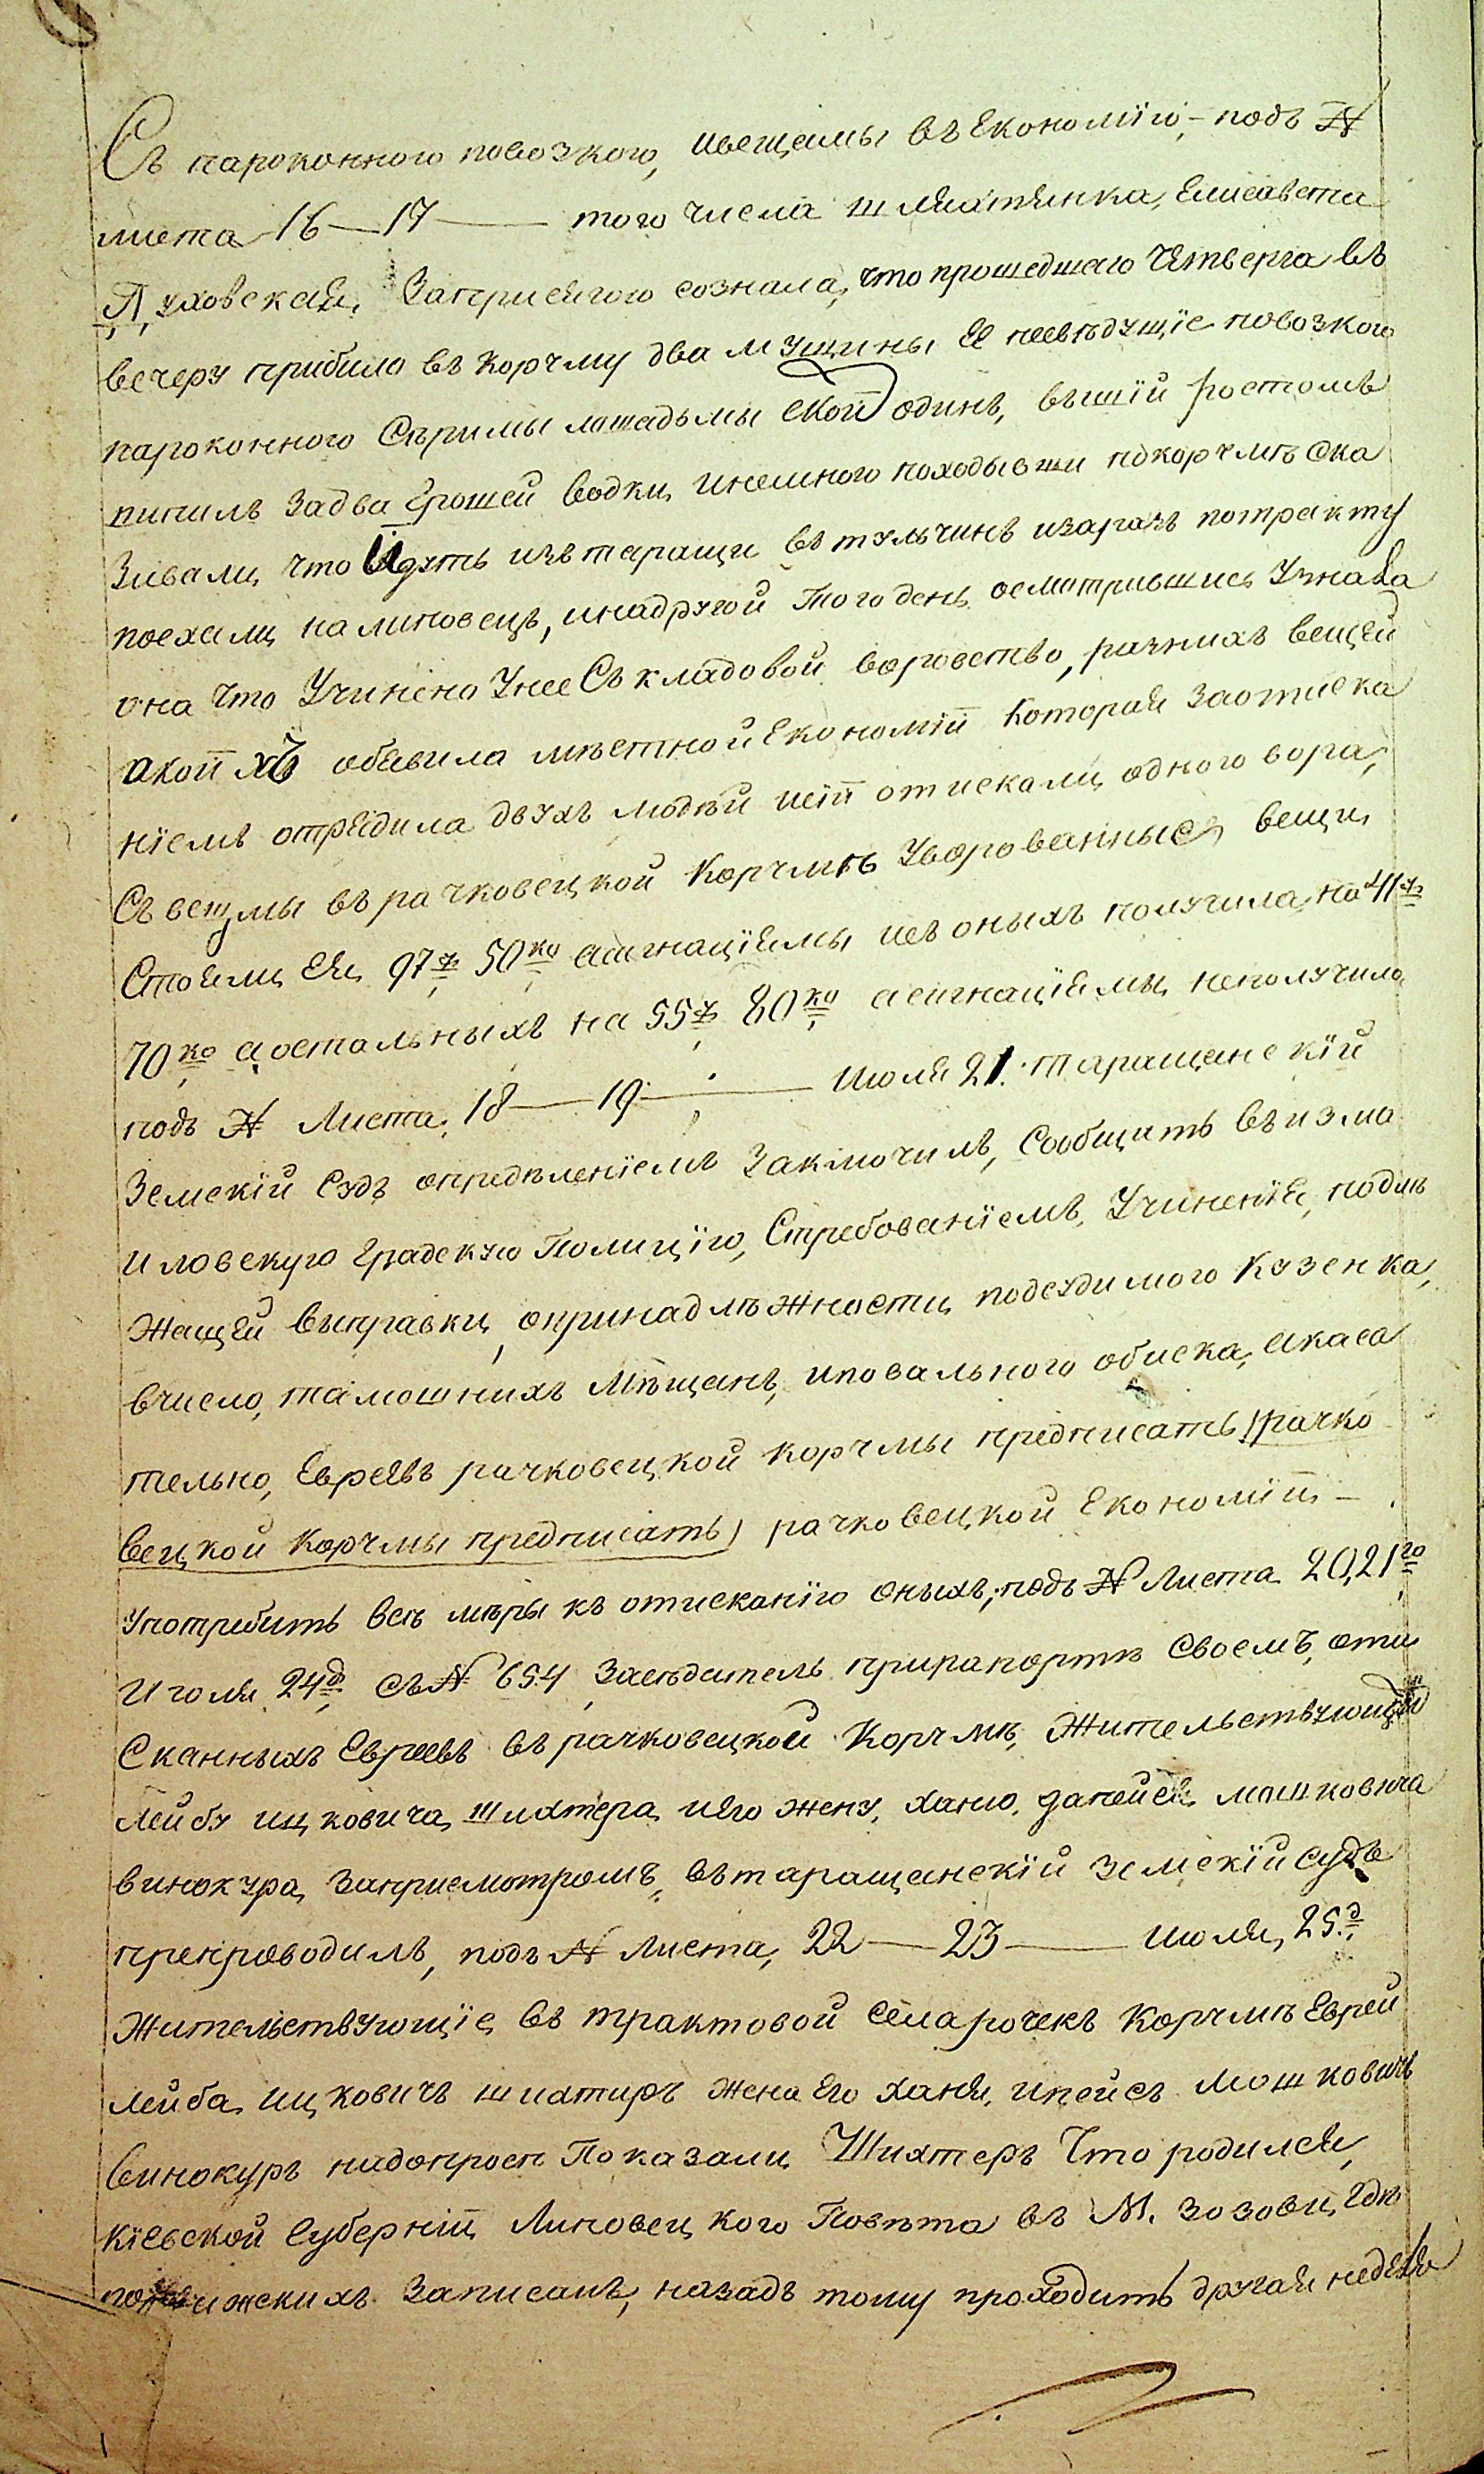 Съ пароконного повозкого, ивещамы въ Економїю, – подъ №
листа 16 — 17 — того числа шляхтянка, Елисавета
Духовская, Заприсягою сознала, что прошедшаго Четверга въ
вечеру прибило въ корчму два мущины Ее невѣдущїе повозкою
пароконного Съримы лошадьмы скоп одинъ, вышїй ростомъ
пипилъ Задва Грошей водки, инемного походывши покорчмѣ ска
зивали, что Идутъ изъ таращи въ тульчинъ изаразъ потракту
поехали, на липовецъ, инадругой того день осмотрившись Узнала
она что Учинено Унее Съ кладовой воровство, разныхъ вещей
окоп хъ обявила мѣстной Економїи Которая Заотиска
нїемъ отрядила двухъ людѣй исїи отискали, одного вора,
Съ вещмы въ рачковецкой Корчмѣ Уворованные, вещи,
Стояли Ей, 97 р 50 ко асигнацїямы изъ оныхъ получила, на 41 р
70 ко а остальныхъ на 55 р 80 ко асигнацїямы, неполучила
подъ № Листа, 18 — 19 — июля 21. Таращанскїй
Земскїй Судъ опредѣленїемъ Заключилъ, Сообщить въ изма
иловскую Градскую Полицїю, Стребованїемъ, Учиненїя, подлѣ
жащей выправки, опринадлѣжности, подсудимого Кузенка,
вчисло, тамошнихъ Мѣщанъ, иповального обиска, а каса
тельно, Евреевъ рачковецкой корчмы предписать (рачко
вецкой Корчмы предписать) рачковецкой Економїи –
употребить всѣ мѣры къ отисканїю оныхъ, подъ № Листа 20, 21 го
Июля 24 д съ № 654 Засѣдатель прирапортѣ Своемъ, оти
Сканныхъ Евреевъ въ рачковецкой Корчмѣ, Жительствующїй
Лейбу ицковича, шихтера, иего жену, ханю, дапейса, мошковича
винокура, Заприсмотромъ, въ таращанскїй земскїй судъ
препроводилъ, подъ № Листа, 22 — 23 — июля, 25 д.
Жительствующїе, въ трактовой Села рочекъ Корчмѣ Евреи
лейба, ицковичъ шихтиръ жена Его ханя, ипейсъ мошковичъ
винокуръ надопросѣ Показали, Шихтеръ Что родился,
кїевской Губернїи, Липовецкого Повѣта въ М. зозовѣ, гдѣ
поревижскихъ Записанъ, назадъ тому проходитъ другая неделя